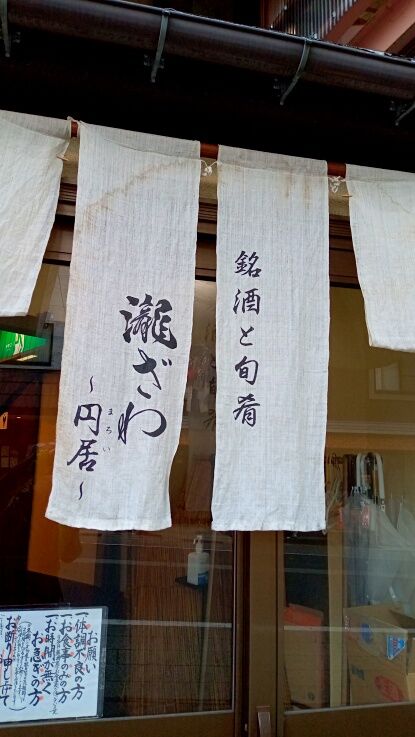 銘酒と旬肴
瀧ざわ
～円居～
まろい
お願い
一体調不良の方
一お食事のみの方
一お時間が無く
お急ぎの方
お断り申し上て